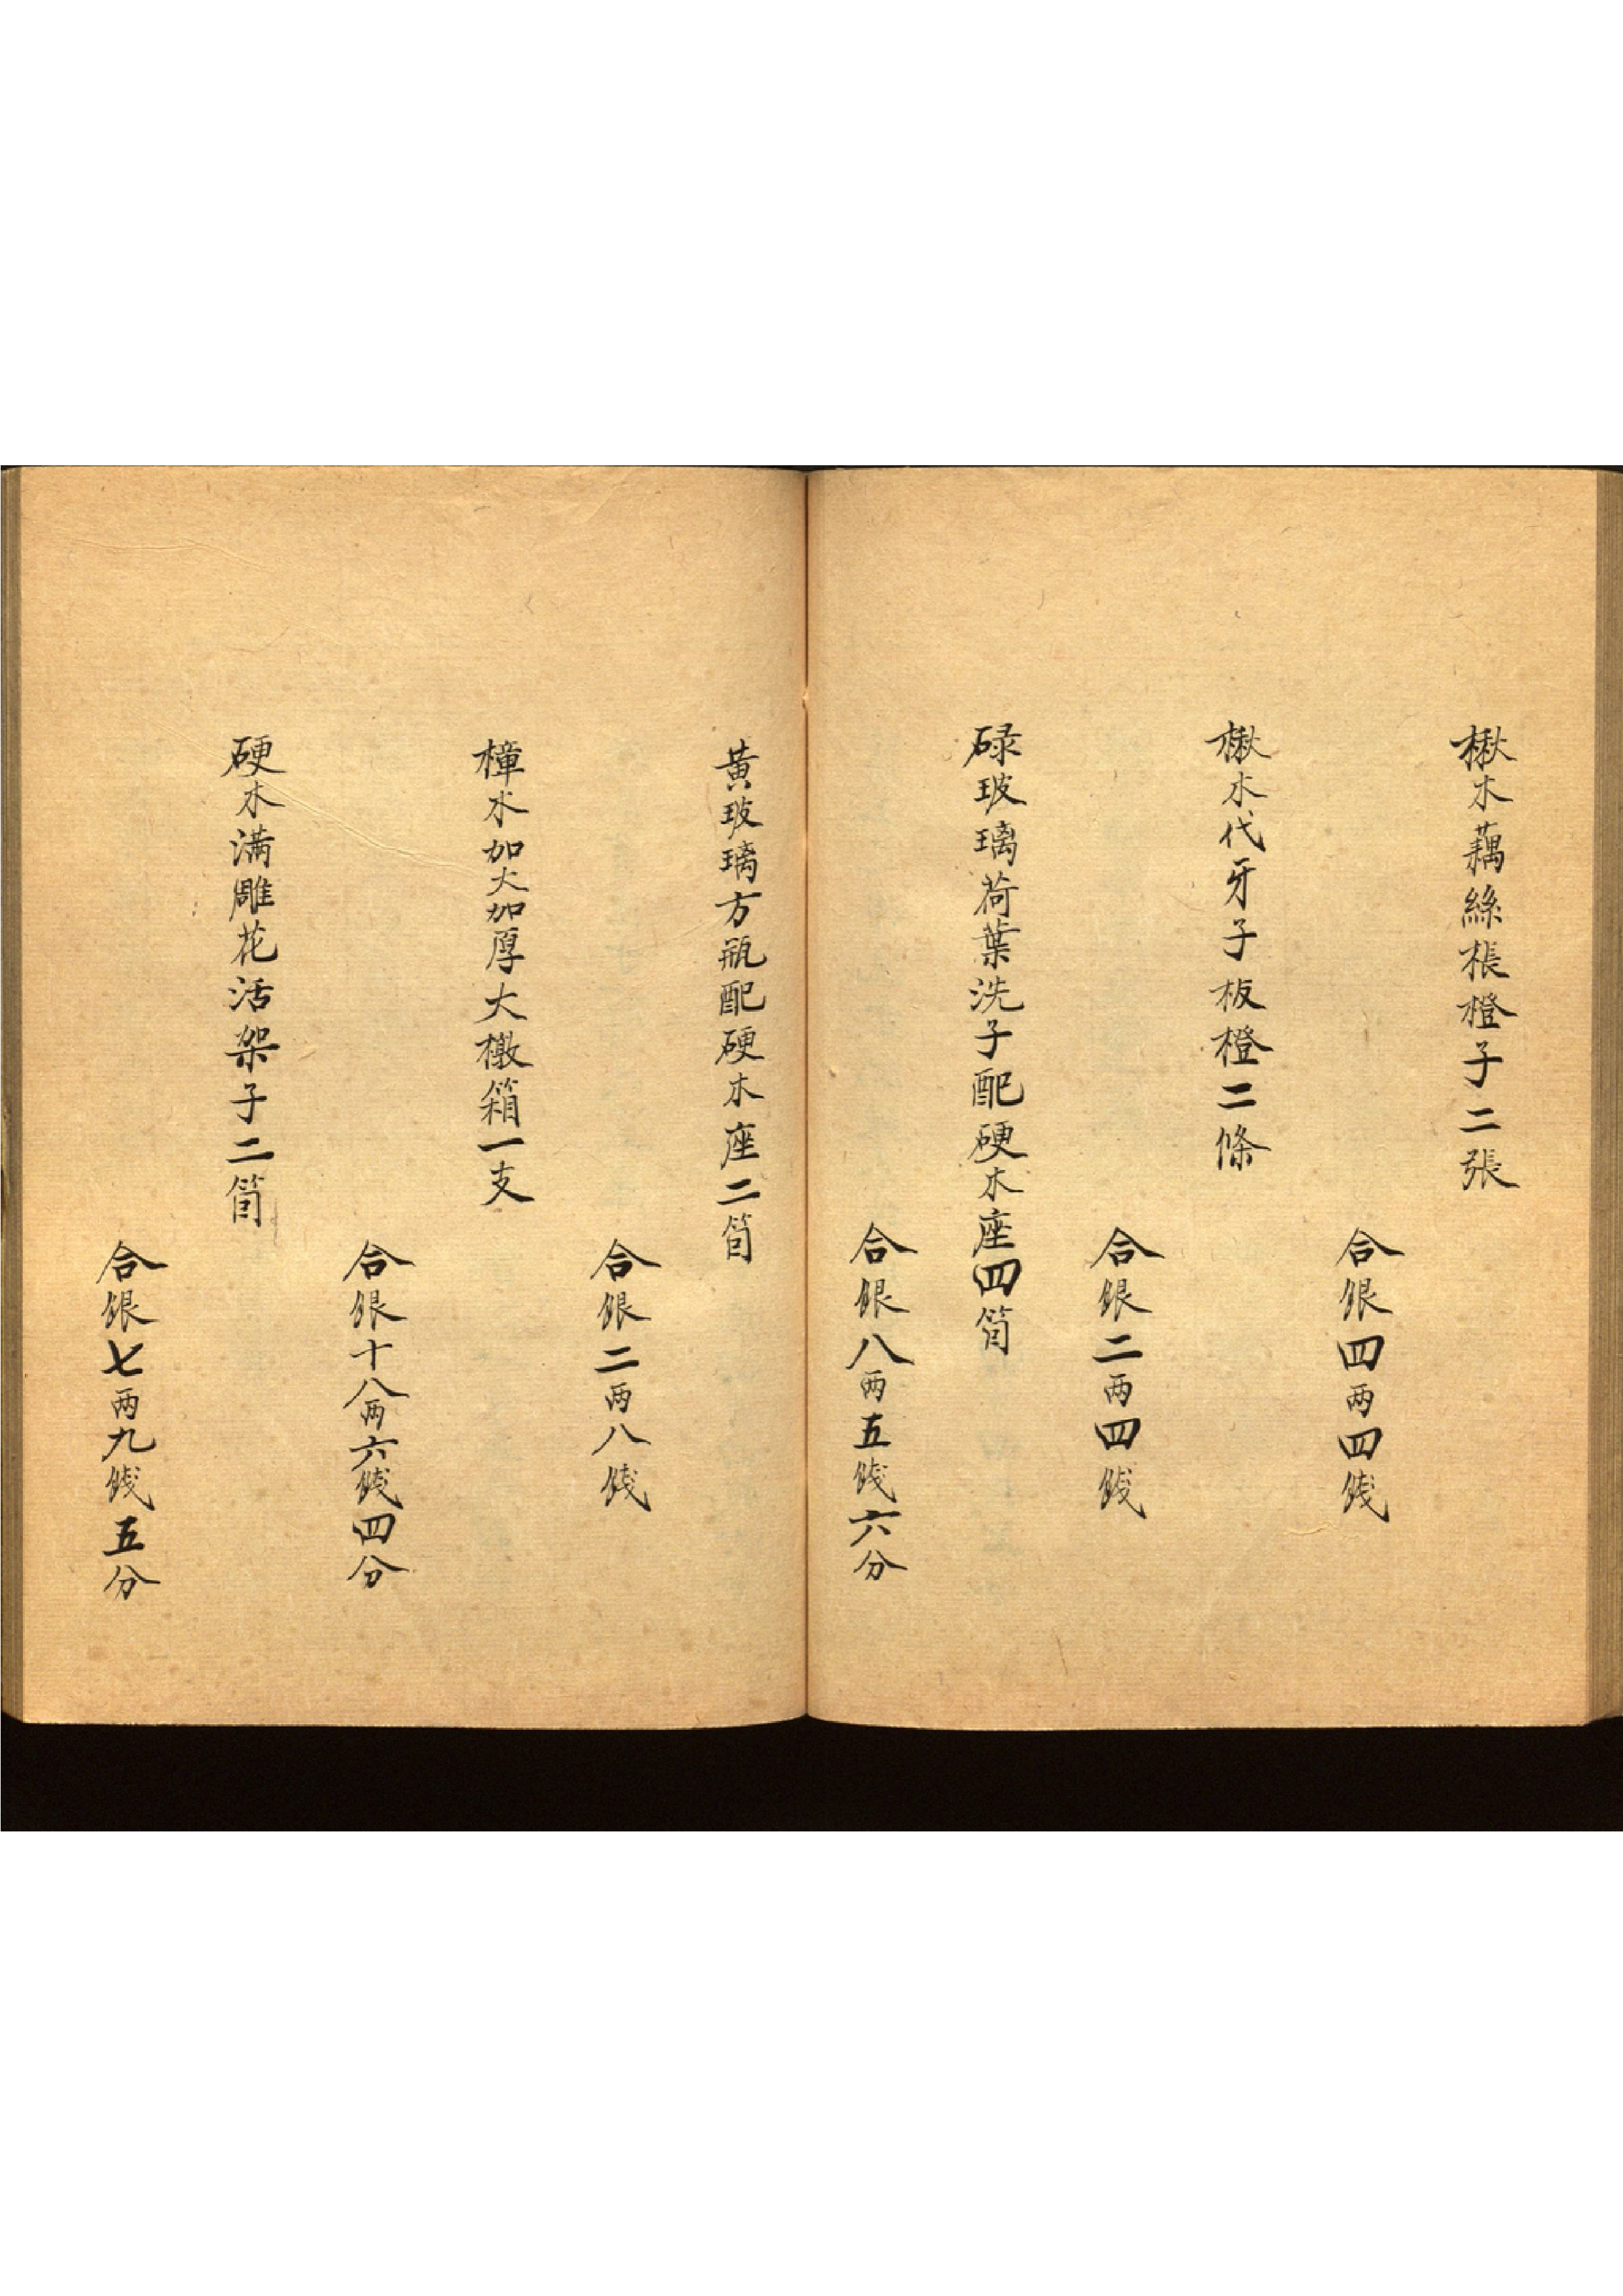 楸木藕絲棖橙子二張
合銀四两四錢
楸木代牙子板橙二條
合銀二两四錢
碌玻璃荷葉洗子配硬木座四箇
合銀八两五錢六分
黃玻璃方瓶配硬木座二箇
合銀二两八錢
樟木加大加厚大檄箱一支
合銀十八两六錢四分
硬木滿雕花活架子二箇
合銀七两九錢五分